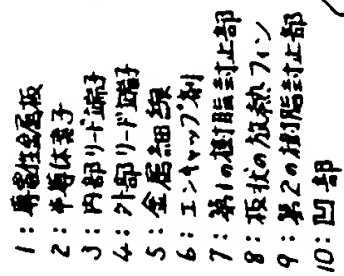 1:導電性金属板
2:半導体素子
3:内部リード端子
4:外部リード端子
5:金属細線
6:エンキャップ剤
7:第1の樹脂封止部
8:板状の放熱フィン
9:第2の樹脂封止部
10:凹部